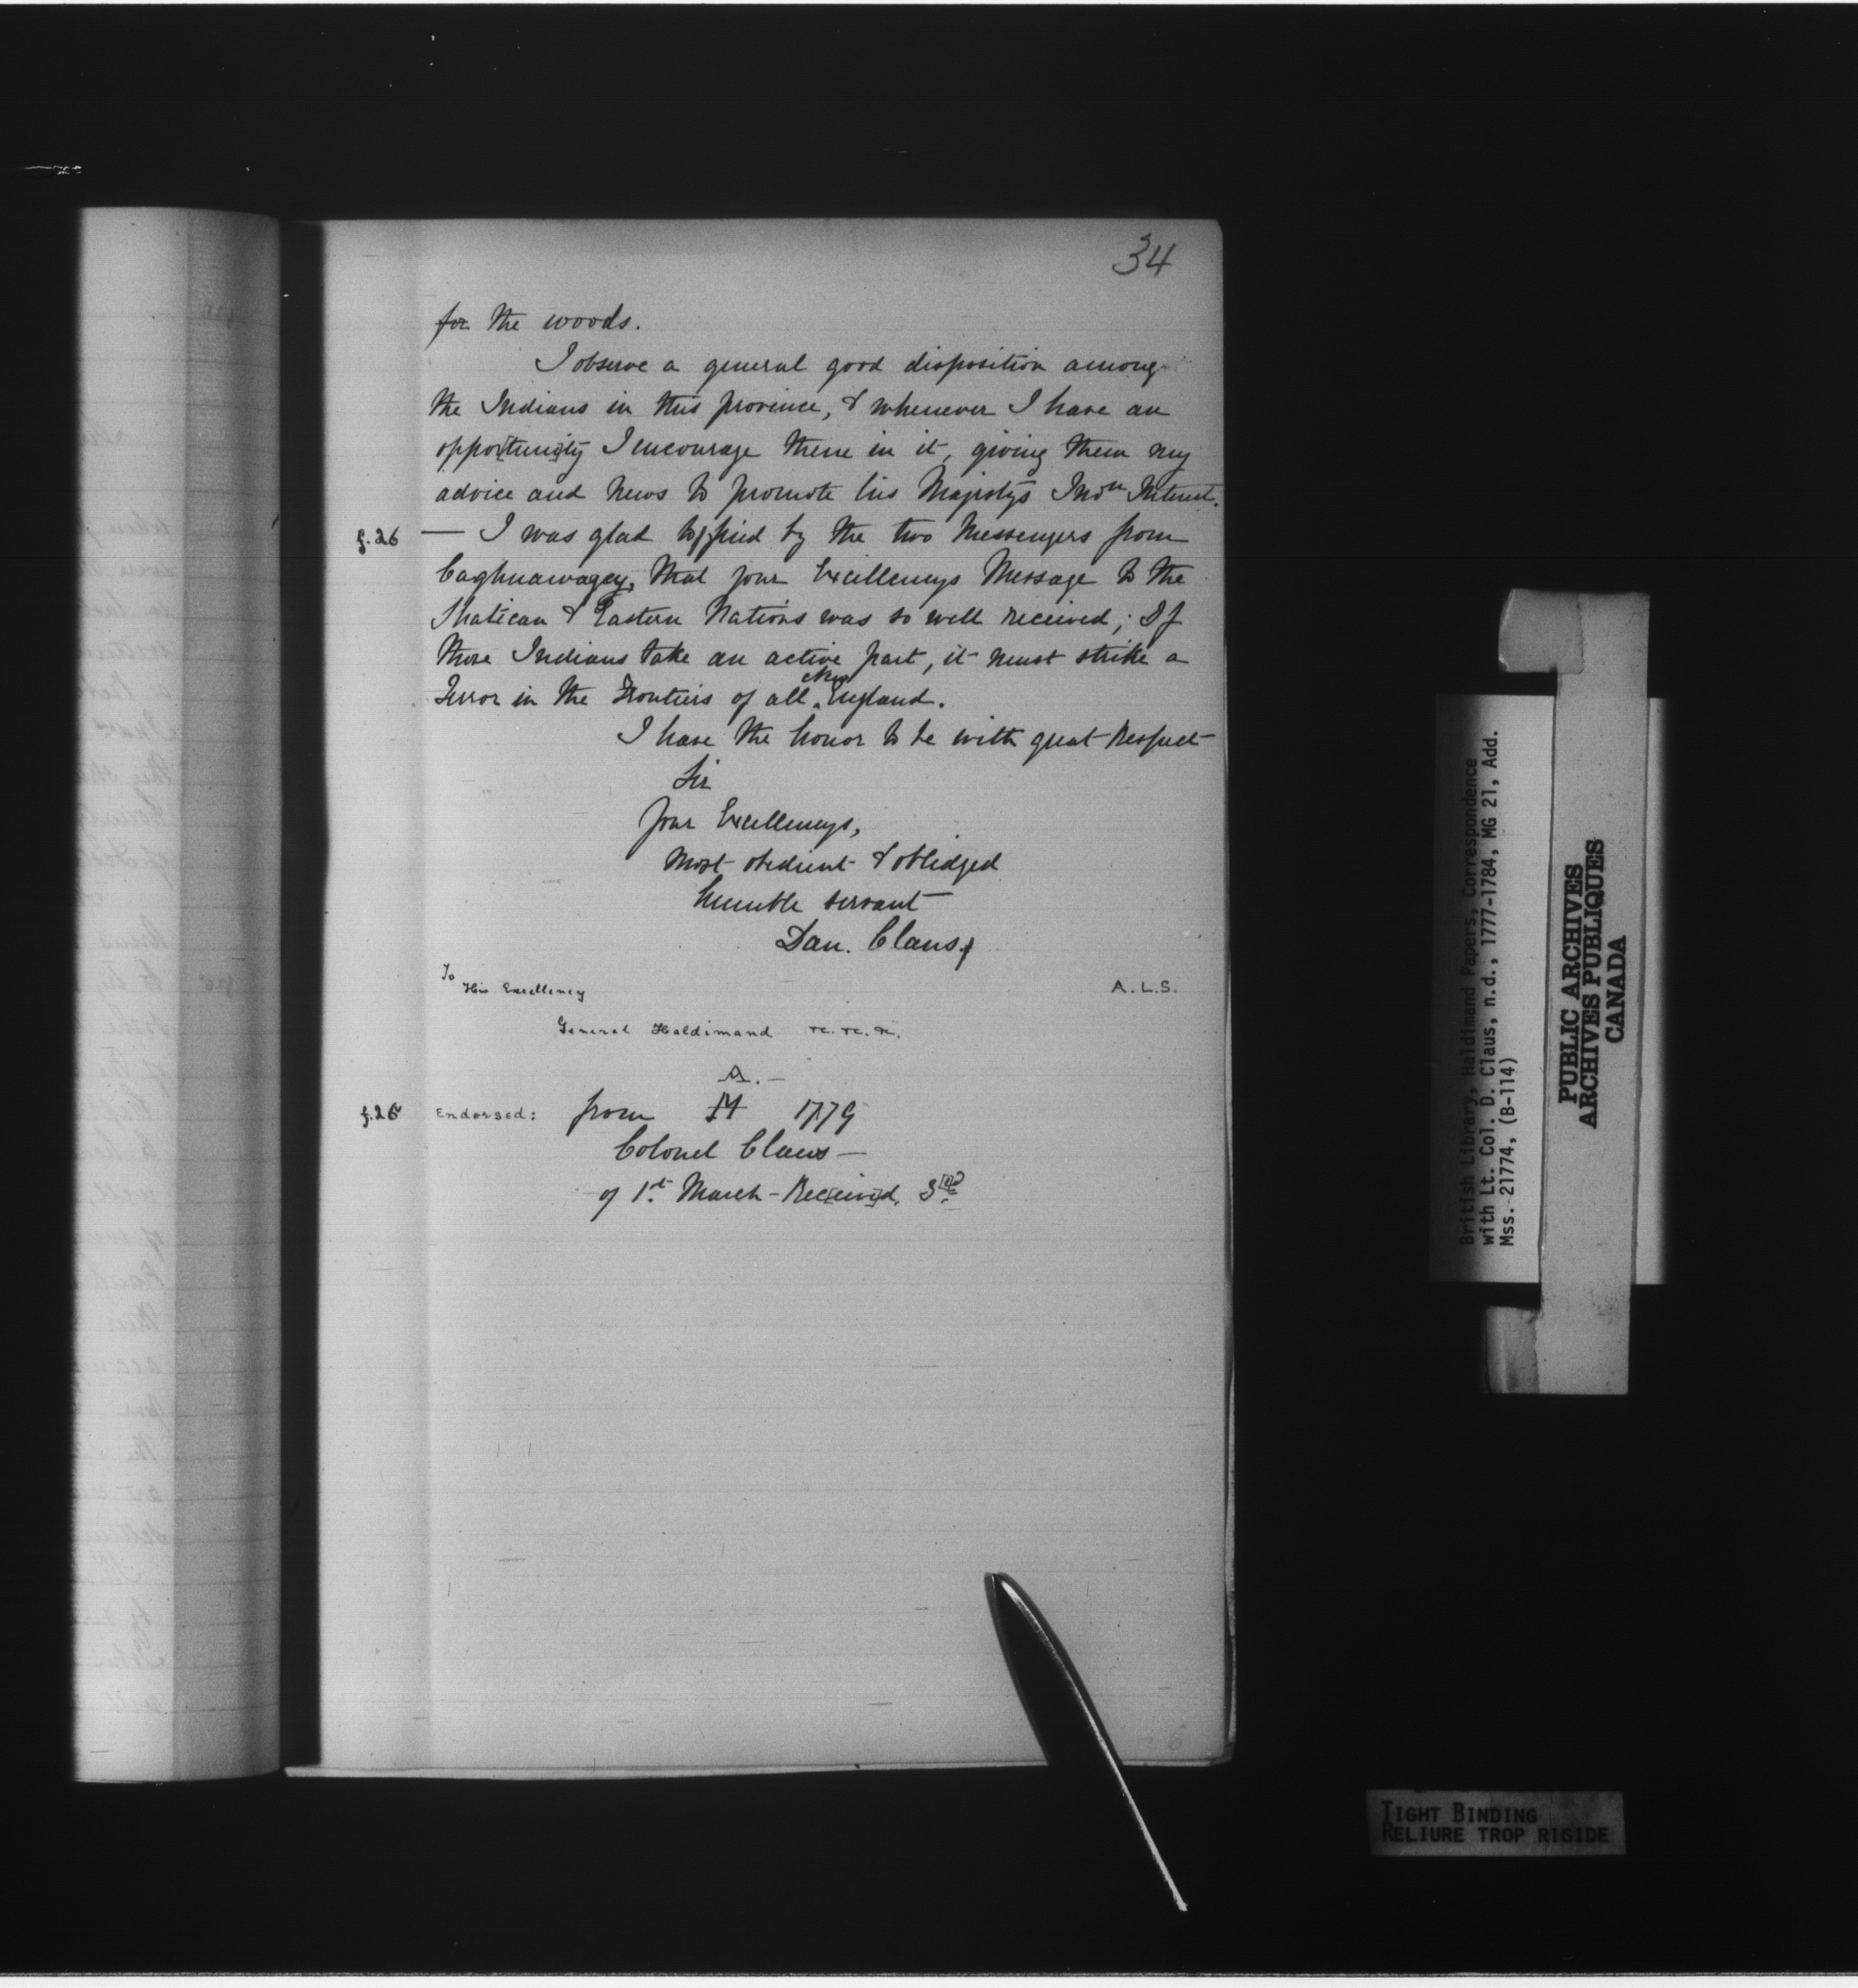 34
for the woods.
I observe a general good disposition among
the Indians in this province, & whenever I have an
oppo[tuni]ty I encourage them in it, giving them my
advice and News to promote his Majesty's Indn Interest.
f.26 — I was glad to find by the two Messengers from
Caghnawagey, that your Excellencys Message to the
& Eastern Nations was so well received; If
those Indians take an active part, it must strike a
Terror in the Frontiers of all New England.
I have the honor to be with great Respect
Sir
Your Excellencys,
Most obedient & oblidged
humble servant
Dan. Claus
To
His Excellency
A.L.S.
General Haldimand &c. &c. &c.
A. —
f.26 Endorsed: from 1779
Colonel Claus —
of 1st March - Rec[eive]d, 3[rd]
British Library, Haldimand Papers, Correspondence
with Lt. Col. D. Claus, n.d., 1777-1784, MG 21, Add.
Mss. 21774, (B-114)
PUBLIC ARCHIVES
ARCHIVES PUBLIQUES
CANADA
TIGHT BINDING
RELIURE TROP RIGIDE